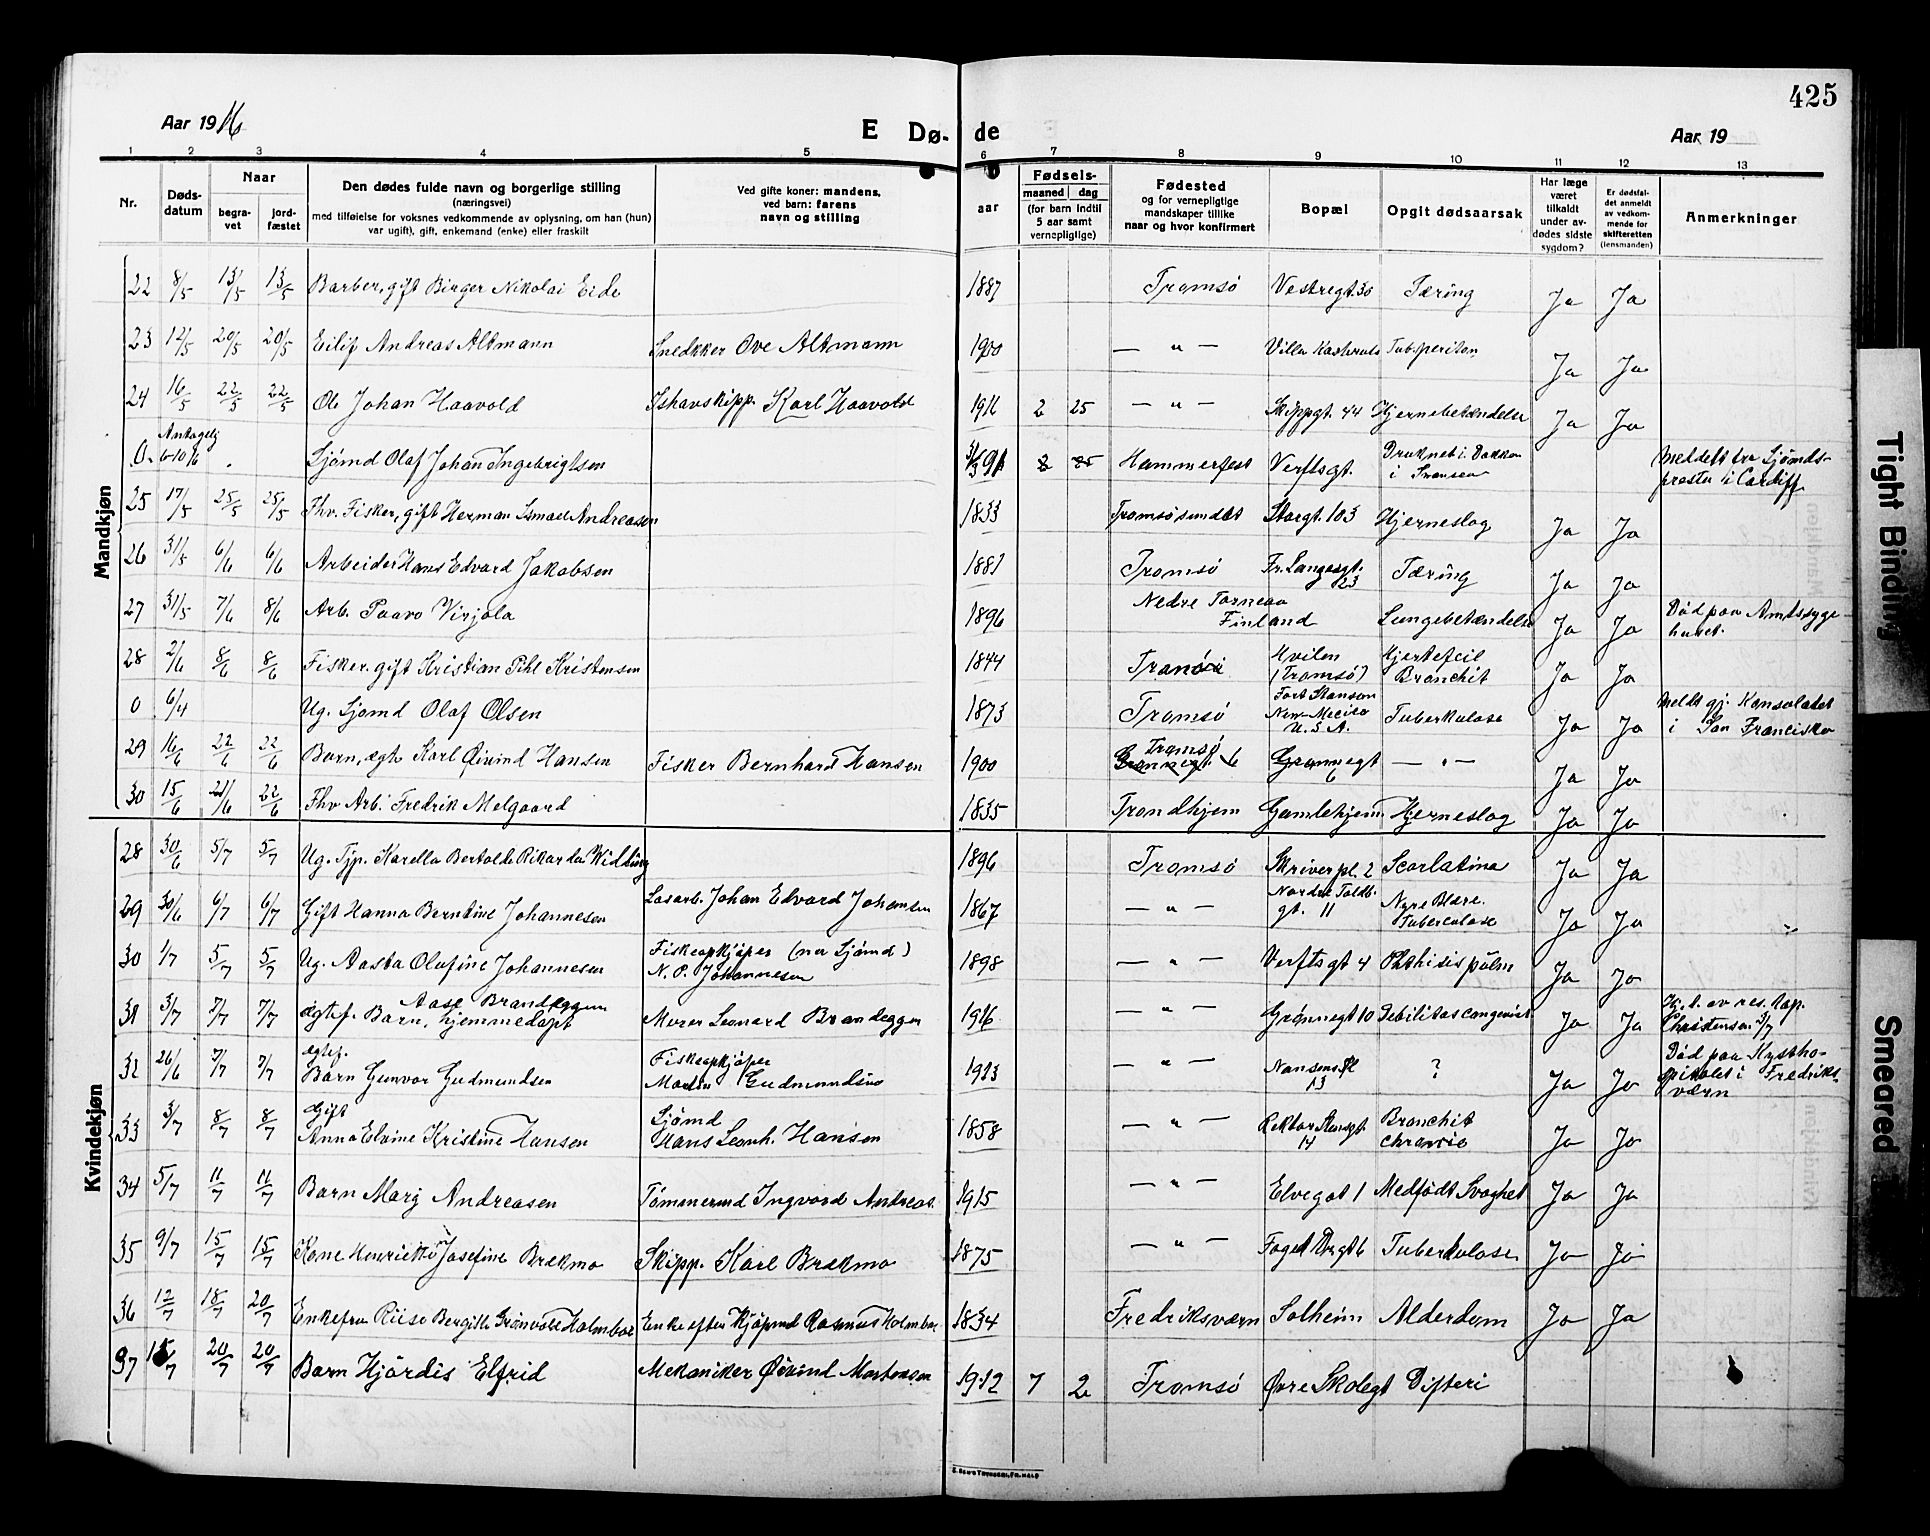 425
Aar 1916
E Døde
Aar 19
1 2 3 4 5 6 7 8 9 10 11 12 13
Nr.
Døds-
datum
Naar
begra-
vet
jord-
fæstet
Den dødes fulde navn og borgerlige stilling
(næringsvei)
med tilføielse for voksnes vedkommende av oplysning, om han (hun)
var ugift), gift, enkemand (enke) eller fraskilt
Ved gifte koner: mandens,
ved barn: farens
navn og stilling
aar
Fødsels-
maaned dag
(for barn indtil
5 aar samt
vernepligtige)
Fødested
og for vernepligtige
mandskaper tillike
naar og hvor konfirmert
Bopæl
Opgit dødsaarsak
Har læge
været
tilkaldt
under av-
dødes sidste
sygdom?
Er dødsfal-
det anmeldt
av vedkom-
mende for
skifteretten
(lensmanden)
Anmerkninger
Mandkjøn
22 8/5 13/5 13/5 Barber, gift Birger Nikolai Eide 1887 Tromsø Vestregt. 30 Tæring Ja Ja
23 12/5 20/5 20/5 Eilif Andreas Altmann Snedkker Ove Altmann 1900 — " — Villa Tubsperiton Ja Ja
24 16/5 22/5 22/5 Ole Johan Haavold Ishavskipp. Karl Haavold 1916 2 25 — " — Skippgt. 44 Hjernebetændelse Ja Ja
0. Antagelig 6-10/6 Sjömd Olaf Johan Ingebrigtsen 31/3 91 2 25 Hammerfest Verftsgt. Druknet i Dokken
i Swansea Meldelt fra Sjömds-
prester i Cardiff
25 17/5 25/5 25/5 Fhv. Fisker, gift Herman Ismael Andreasen 1833 Tromsøsundet Storgt. 103 Hjerneslag Ja Ja
26 31/5 6/6 6/6 Arbeider Hans Edvard Jakobsen 1881 Tromsø Fr. Langesgt.
23 Tæring Ja Ja
27 31/5 7/6 8/6 Arb. Paavo Virjola 1896 Nedre Tornea
Finland Lungebetændelse Ja Ja Död paa Amtssyge
huset.
28 2/6 8/6 8/6 Fisker, gift Kristian Pihl Kristensen 1844 Hvilen
(Tromsø) Hjertefeil
Bronchit Ja Ja
0 6/4 Ug. Sjömd Olaf Olsen 1873 Tromsø Fort Stanson
New-Mecico
U. S. A. Tuberkulose Ja Ja Meldt gj. Konsulatet
i San Francisko
29 16/6 22/6 22/6 Barn, ægte Karl Øivind Hansen Fisker Bernhard Hansen 1900 Tromsø
Grønnegt. 6 Grønnegt
6 — " — Ja Ja
30 15/6 21/6 22/6 Fhv Arb. Fredrik Melgaard 1835 Trondhjem Gamlehjem Hjerneslag Ja Ja
Kvindekjøn
28 30/6 5/7 5/7 Ug. Tjp. Karella Bertolde Rikarda Widting 1896 Tromsø Skriverpl. 2 Scarlatina Ja Ja
29 30/6 6/7 6/7 Gift Hanna Berntine Johannesen Losarb. Johan Edvard Johansen 1867 — " — Nordre Toldb.
gt. 11 Nyre Blære.
Tuberculose Ja Ja
30 1/7 5/7 5/7 Ug. Aasta Olafine Johannesen Fiskeopkjöper (nu Sjömd)
N. P. Johannesen 1898 — " — Verftsgt 4 Phthisis pulm Ja Ja
31 3/7 7/7 7/7 Aase Brandeggen
ægtef. Barn, hjemmedöpt Murer Leonard Brandeggen 1916 — " — Grønnegt 10 Debilitas congenit Ja Ja Hj. d. av res. Kap.
Christensen 3/7
32 26/6 7/7 7/7 ægtef.
Barn Gunvor Gudmundsen Fiskeopkjöper
Martin Gudmundsen 1913 — " — Nansenspl
13 ? Ja Ja Död paa Kystho-
spitalet i Fredriks-
værn
33 3/7 8/7 8/7 Gift
Anna Elvine Kristine Hansen Sjömd
Hans Leonh. Hansen 1858 — " — Rektor Steengt
14 Bronchit
chronic Ja Ja
34 5/7 11/7 11/7 Barn Marg Andreasen Tömmermd Ingvard Andreas. 1915 — " — Elvegat 1 Medfödt Svaghet Ja Ja
35 9/7 15/7 15/7 Kone Henriette Josefine Brekmo Skipp. Karl Brekmo 1875 — " — Foged Drgt 6 Tuberkulose Ja Ja
36 12/7 18/7 20/7 Enkefru Riise Bergitte Grönvold Holmboe Enke efter Kjöpmd Rasmus Holmboe 1834 Fredriksværn Solheim Alderdom Ja Ja
37 15/7 20/7 20/7 Barn Hjördis Elfrid Mekaniker Øivind Mortensen 1912 7 2 Tromsø Øvre Skolegt Difteri
Tight Binding
Smeared